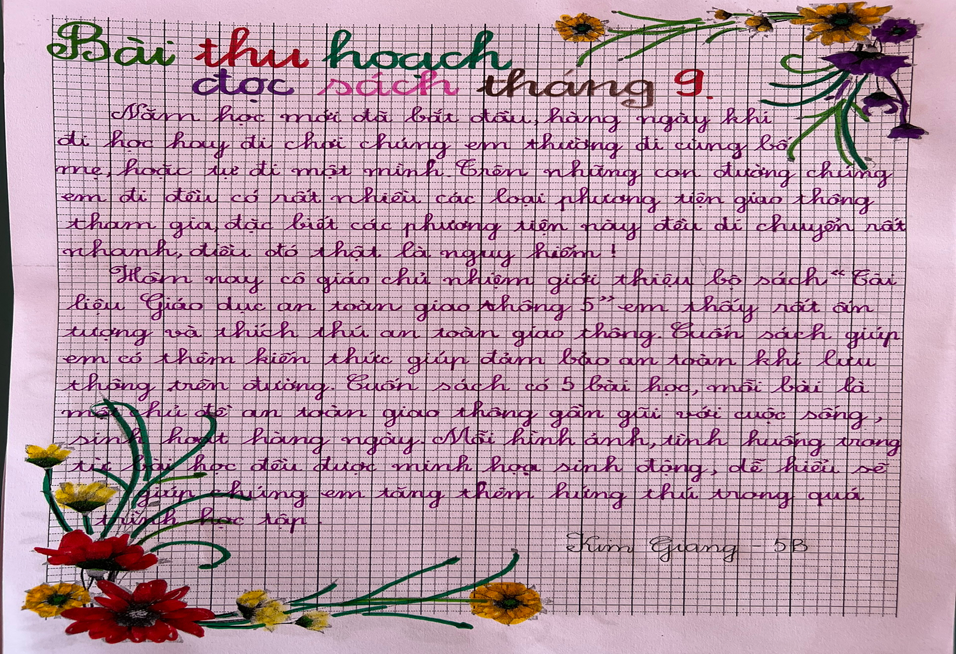 Bài thu hoạch
đọc sách tháng 9.
Năm học mới đã bắt đầu, hàng ngày khi
đi học hay đi chơi chúng em thường đi cùng bố
mẹ, hoặc tự đi một mình. Trên những con đường chúng
em đi đều có rất nhiều các loại phương tiện giao thông
tham gia, đặc biệt các phương tiện này đều di chuyển rất
nhanh, điều đó thật là nguy hiểm!
Hôm nay cô giáo chủ nhiệm giới thiệu bộ sách "Tài
liệu Giáo dục an toàn giao thông 5" em thấy rất ấn
tượng và thích thú an toàn giao thông. Cuốn sách giúp
em có thêm kiến thức giúp đảm bảo an toàn khi lưu
thông trên đường. Cuốn sách có 5 bài học, mỗi bài là
một chủ đề an toàn giao thông gần gũi với cuộc sống,
sinh hoạt hàng ngày. Mỗi hình ảnh, tình huống trong
từ bài học đều được minh họa sinh động, dễ hiểu sẽ
giúp chúng em tăng thêm hứng thú trong quá
trình học tập.
Kim Giang - 5B